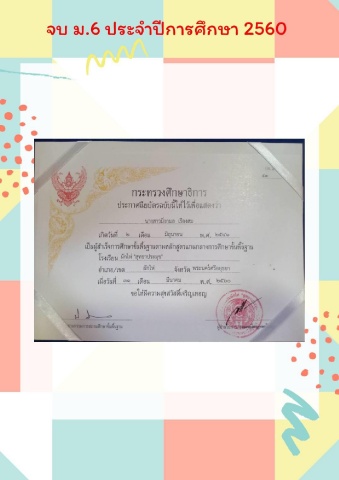 จบ ม.6 ประจำปีการศึกษา 2560
กระทรวงศึกษาธิการ
ประกาศนียบัตรฉบับนี้ให้ไว้เพื่อแสดงว่า
เกิดวันที่ ๒ เดือน มิถุนายน พ.ศ.
เป็นผู้สำเร็จการศึกษาขั้นพื้นฐานตามหลักสูตรแกนกลางการศึกษาขั้นพื้นฐาน
โรงเรียน ผักไห่ "สุทธาประมุข"
อำเภอ/เขต ผักไห่ จังหวัด พระนครศรีอยุธยา
เมื่อวันที่ ๓๑ เดือน มีนาคม พ.ศ. ๒๕๖๐
ขอให้มีความสุขสวัสดิ์เจริญเทอญ